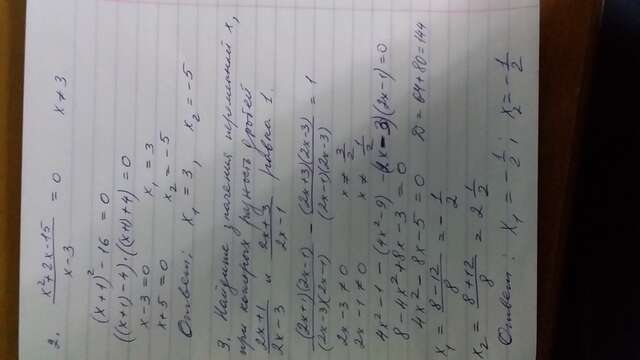 2. (x²+2x-15)/(x-3) = 0    x≠3
(x+1)²-16=0
((x+1)-4)·((x+1)+4)=0
x-3=0    x₁=3
x+5=0    x₂=-5
Ответ: x₁=3, x₂=-5
3. Найдите значения переменной x,
при которых разность дробей
(2x+1)/(2x-3) и (2x+3)/(2x-1) равна 1.
((2x+1)(2x-1))/((2x-3)(2x-1)) - ((2x+3)(2x-3))/((2x-1)(2x-3)) = 1
2x-3≠0    x≠3/2
2x-1≠0    x≠1/2
4x²-1-(4x²-9)-(2x-3)(2x-1)=0
8-4x²+8x-3=0
4x²-8x-5=0    D=64+80=144
x₁=(8-12)/8=-1/2
x₂=(8+12)/8=2 1/2
Ответ: x₁=-1/2; x₂=-1/2